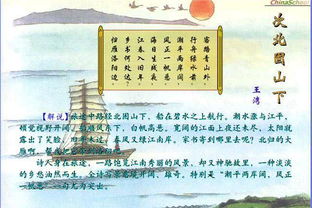 ChinaSchool
次北固山下
王湾
客路青山外
行舟绿水前
潮平两岸阔
风正一帆悬
海日生残夜
江春入旧年
乡书何处达
归雁洛阳边
【解说】旅途中路经北固山下，船在碧水之上航行。潮水涨与江平，
顿觉视野开阔，船顺风东下，白帆高悬。宽阔的江面上夜还未尽，太阳就
露出了笑脸，旧年未过，春风又绿江南岸。家书寄到哪里去呢？北归的大
雁啊，替我把它带到洛阳吧。
诗人身在旅途，一路饱览江南秀丽的风景，却又神驰故里，一种淡淡
的乡愁油然而生。全诗写景意境开阔、雄奇。特别是“潮平两岸阔，风正
一帆悬”一句尤为突出。